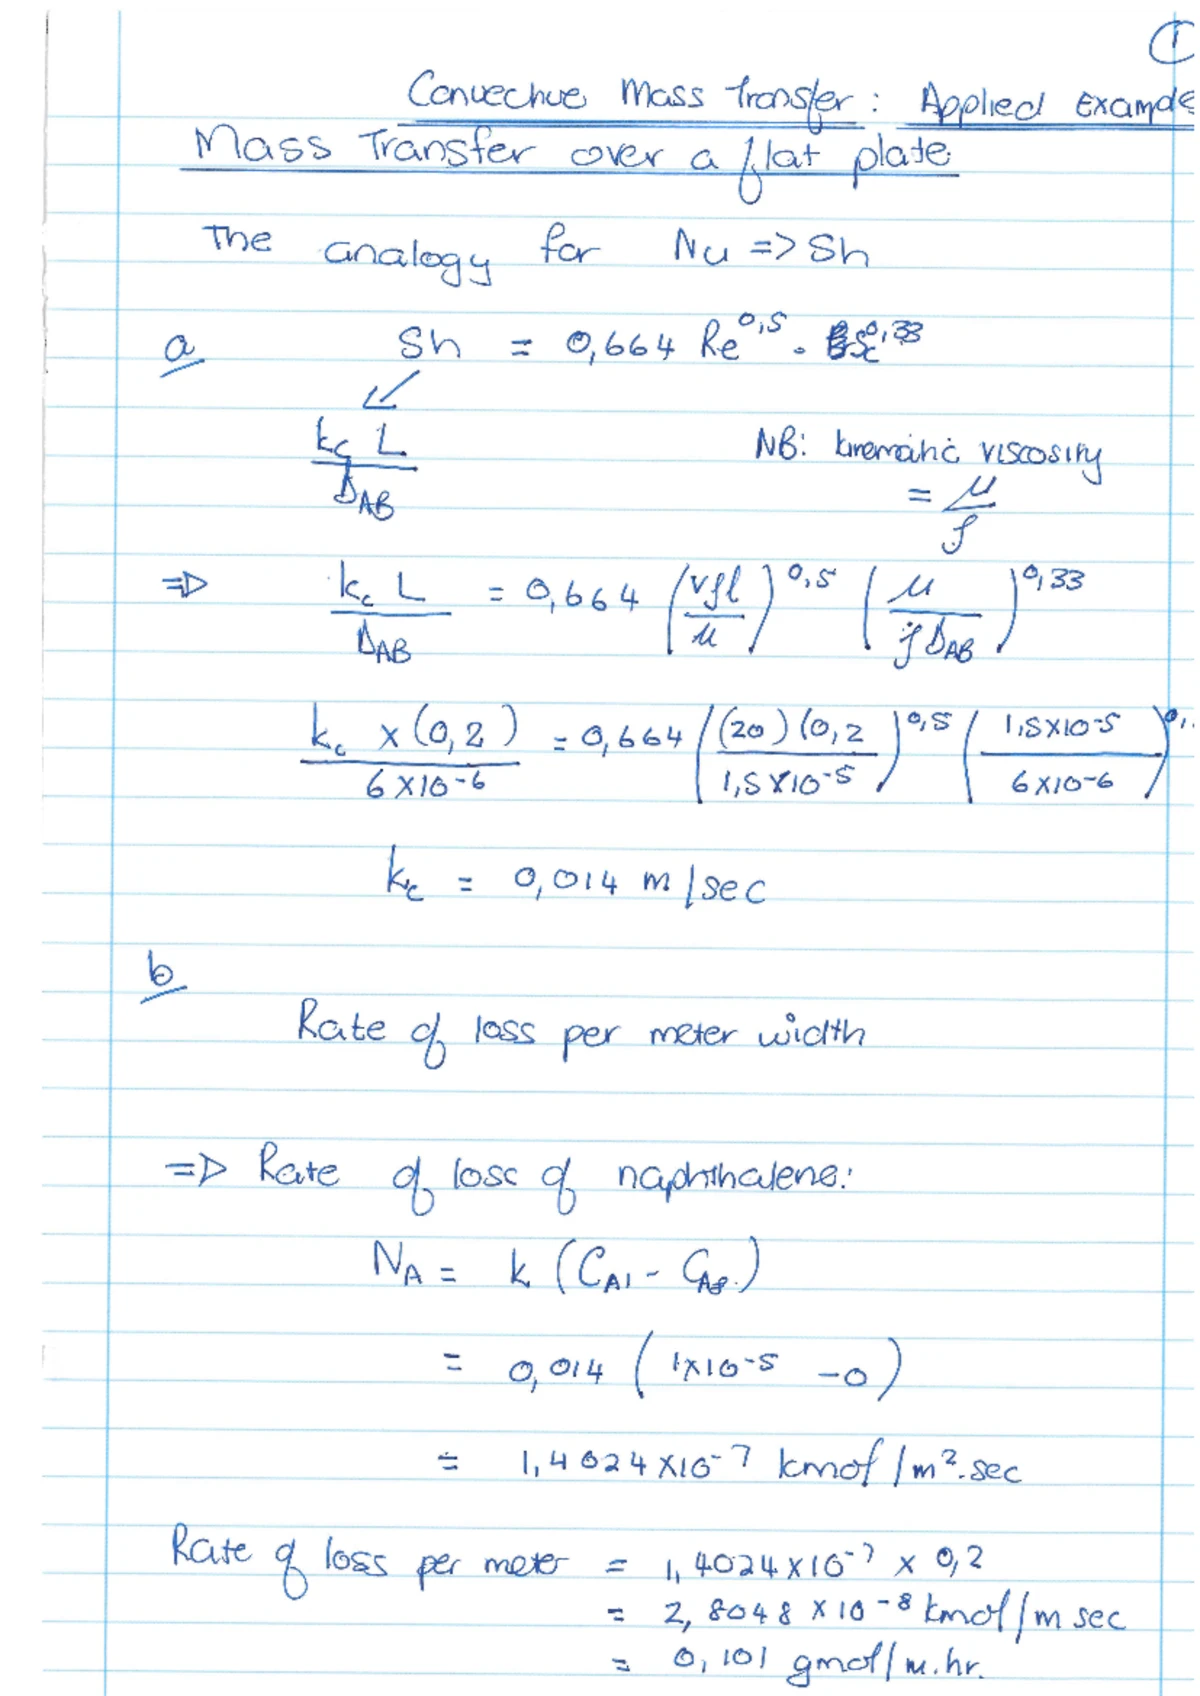 ①
Convective Mass Transfer: Applied Example
Mass Transfer over a flat plate
The analogy for Nu => Sh
a Sh = 0,664 Re^0,5 . Sc^0,33
k_c L / D_AB
NB: kinematic viscosity
= μ / ρ
=> k_c L / D_AB = 0,664 (vρl / μ)^0,5 (μ / ρ D_AB)^0,33
k_c x (0,2) / 6x10^-6 = 0,664 ((20)(0,2 / 1,5x10^-5)^0,5 (1,5x10^-5 / 6x10^-6)^0,
k_c = 0,014 m/sec
b
Rate of loss per meter width
=> Rate of loss of naphthalene:
N_A = k (C_A1 - C_A
= 0,014 (1x10^-5 - 0)
= 1,4024x10^-7 kmol/m².sec
Rate of loss per meter = 1,4024x10^-7 x 0,2
= 2,8048 x 10^-8 kmol/m sec
= 0,101 gmol/m.hr.